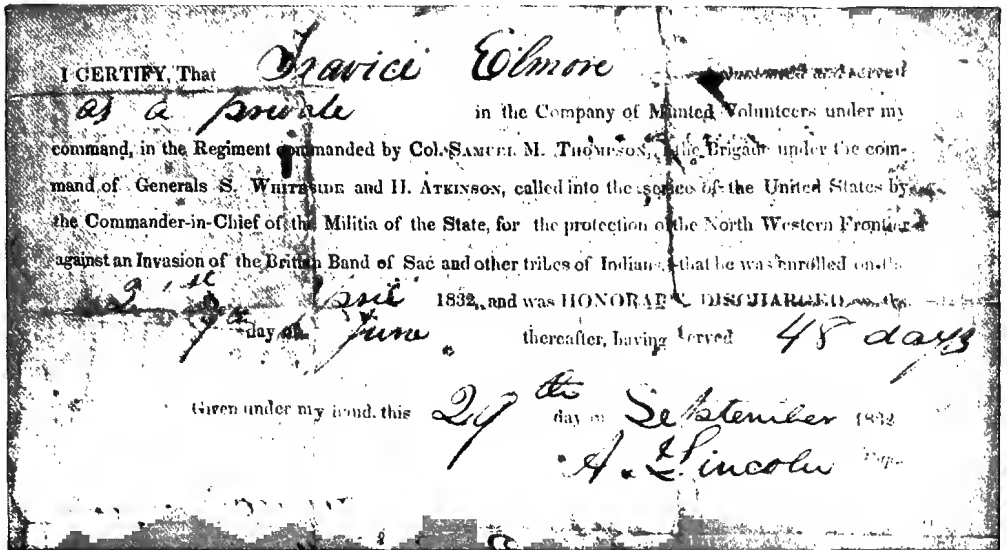 I CERTIFY, That Travice Elmore volunteered and served
as a private in the Company of Mounted Volunteers under my
command, in the Regiment commanded by Col. SAMUEL M. THOMPSON, the Brigade under the com-
mand of Generals S. WHITESIDE and H. ATKINSON, called into the service of the United States by
the Commander-in-Chief of the Militia of the State, for the protection of the North Western Frontier
against an Invasion of the British Band of Sac and other tribes of Indians, that he was enrolled on the
21st April 1832, and was HONORABLY DISCHARGED on the
7th day of June thereafter, having served 48 days
Given under my hand, this 29th day of September 1832
A. Lincoln Cap.